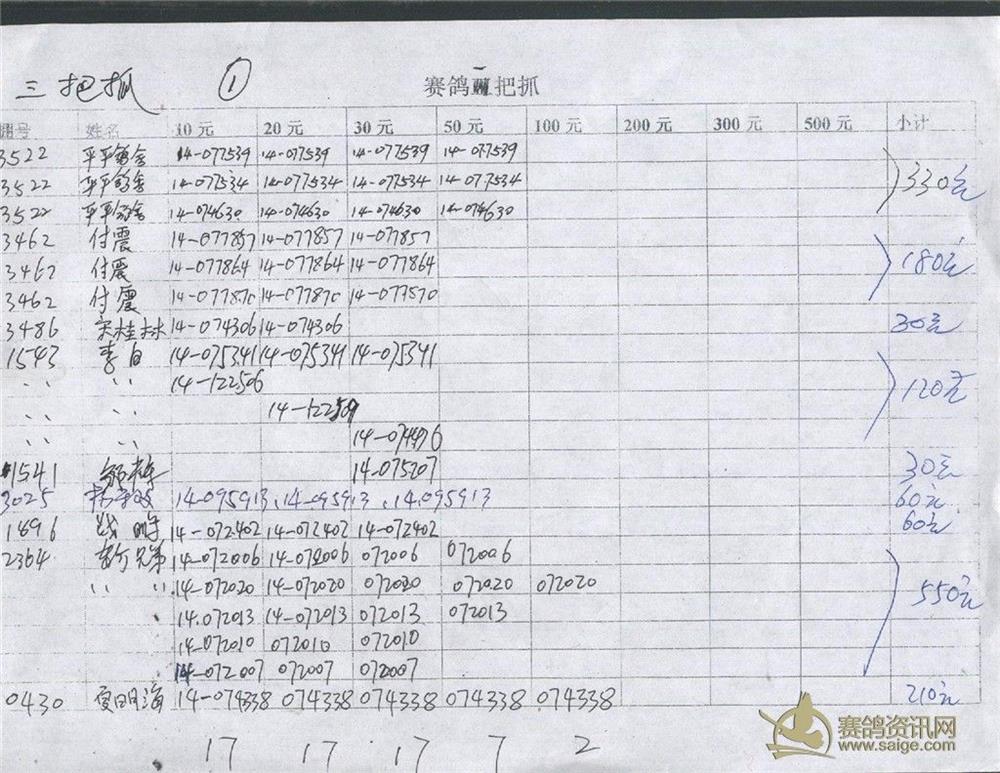 三把抓 ① 赛鸽 把抓
棚号 姓名 10元 20元 30元 50元 100元 200元 300元 500元 小计
3522 平平鸽舍 14-077539 14-077539 14-077539 14-077539
3522 平平鸽舍 14-077534 14-077534 14-077534 14-077534 330元
3522 平平鸽舍 14-074630 14-074630 14-074630 14-074630
3462 付震 14-077857 14-077857 14-077857
3462 付震 14-077864 14-077864 14-077864 180元
3462 付震 14-077870 14-077870 14-077870
3486 宋桂林 14-074306 14-074306 30元
1543 李自 14-075341 14-075341 14-075341
〃 〃 14-122506 120元
〃 〃 14-122509
〃 〃 14-074476
1541 14-075207 30元
3025 14-095913 14-095913 14.095913 60元
1896 战 14-072402 14-072402 14-072402 60元
2364 兄弟 14-072006 14-072006 072006 072006
〃 〃 14-072020 14-072020 072020 072020 072020 550元
14.072013 14-072013 072013 072013
14-072010 072010 072010
14-072007 072007 072007
0430 夏明海 14-074338 074338 074338 074338 074338 210元
17 17 17 7 2
赛鸽资讯网
www.saige.com